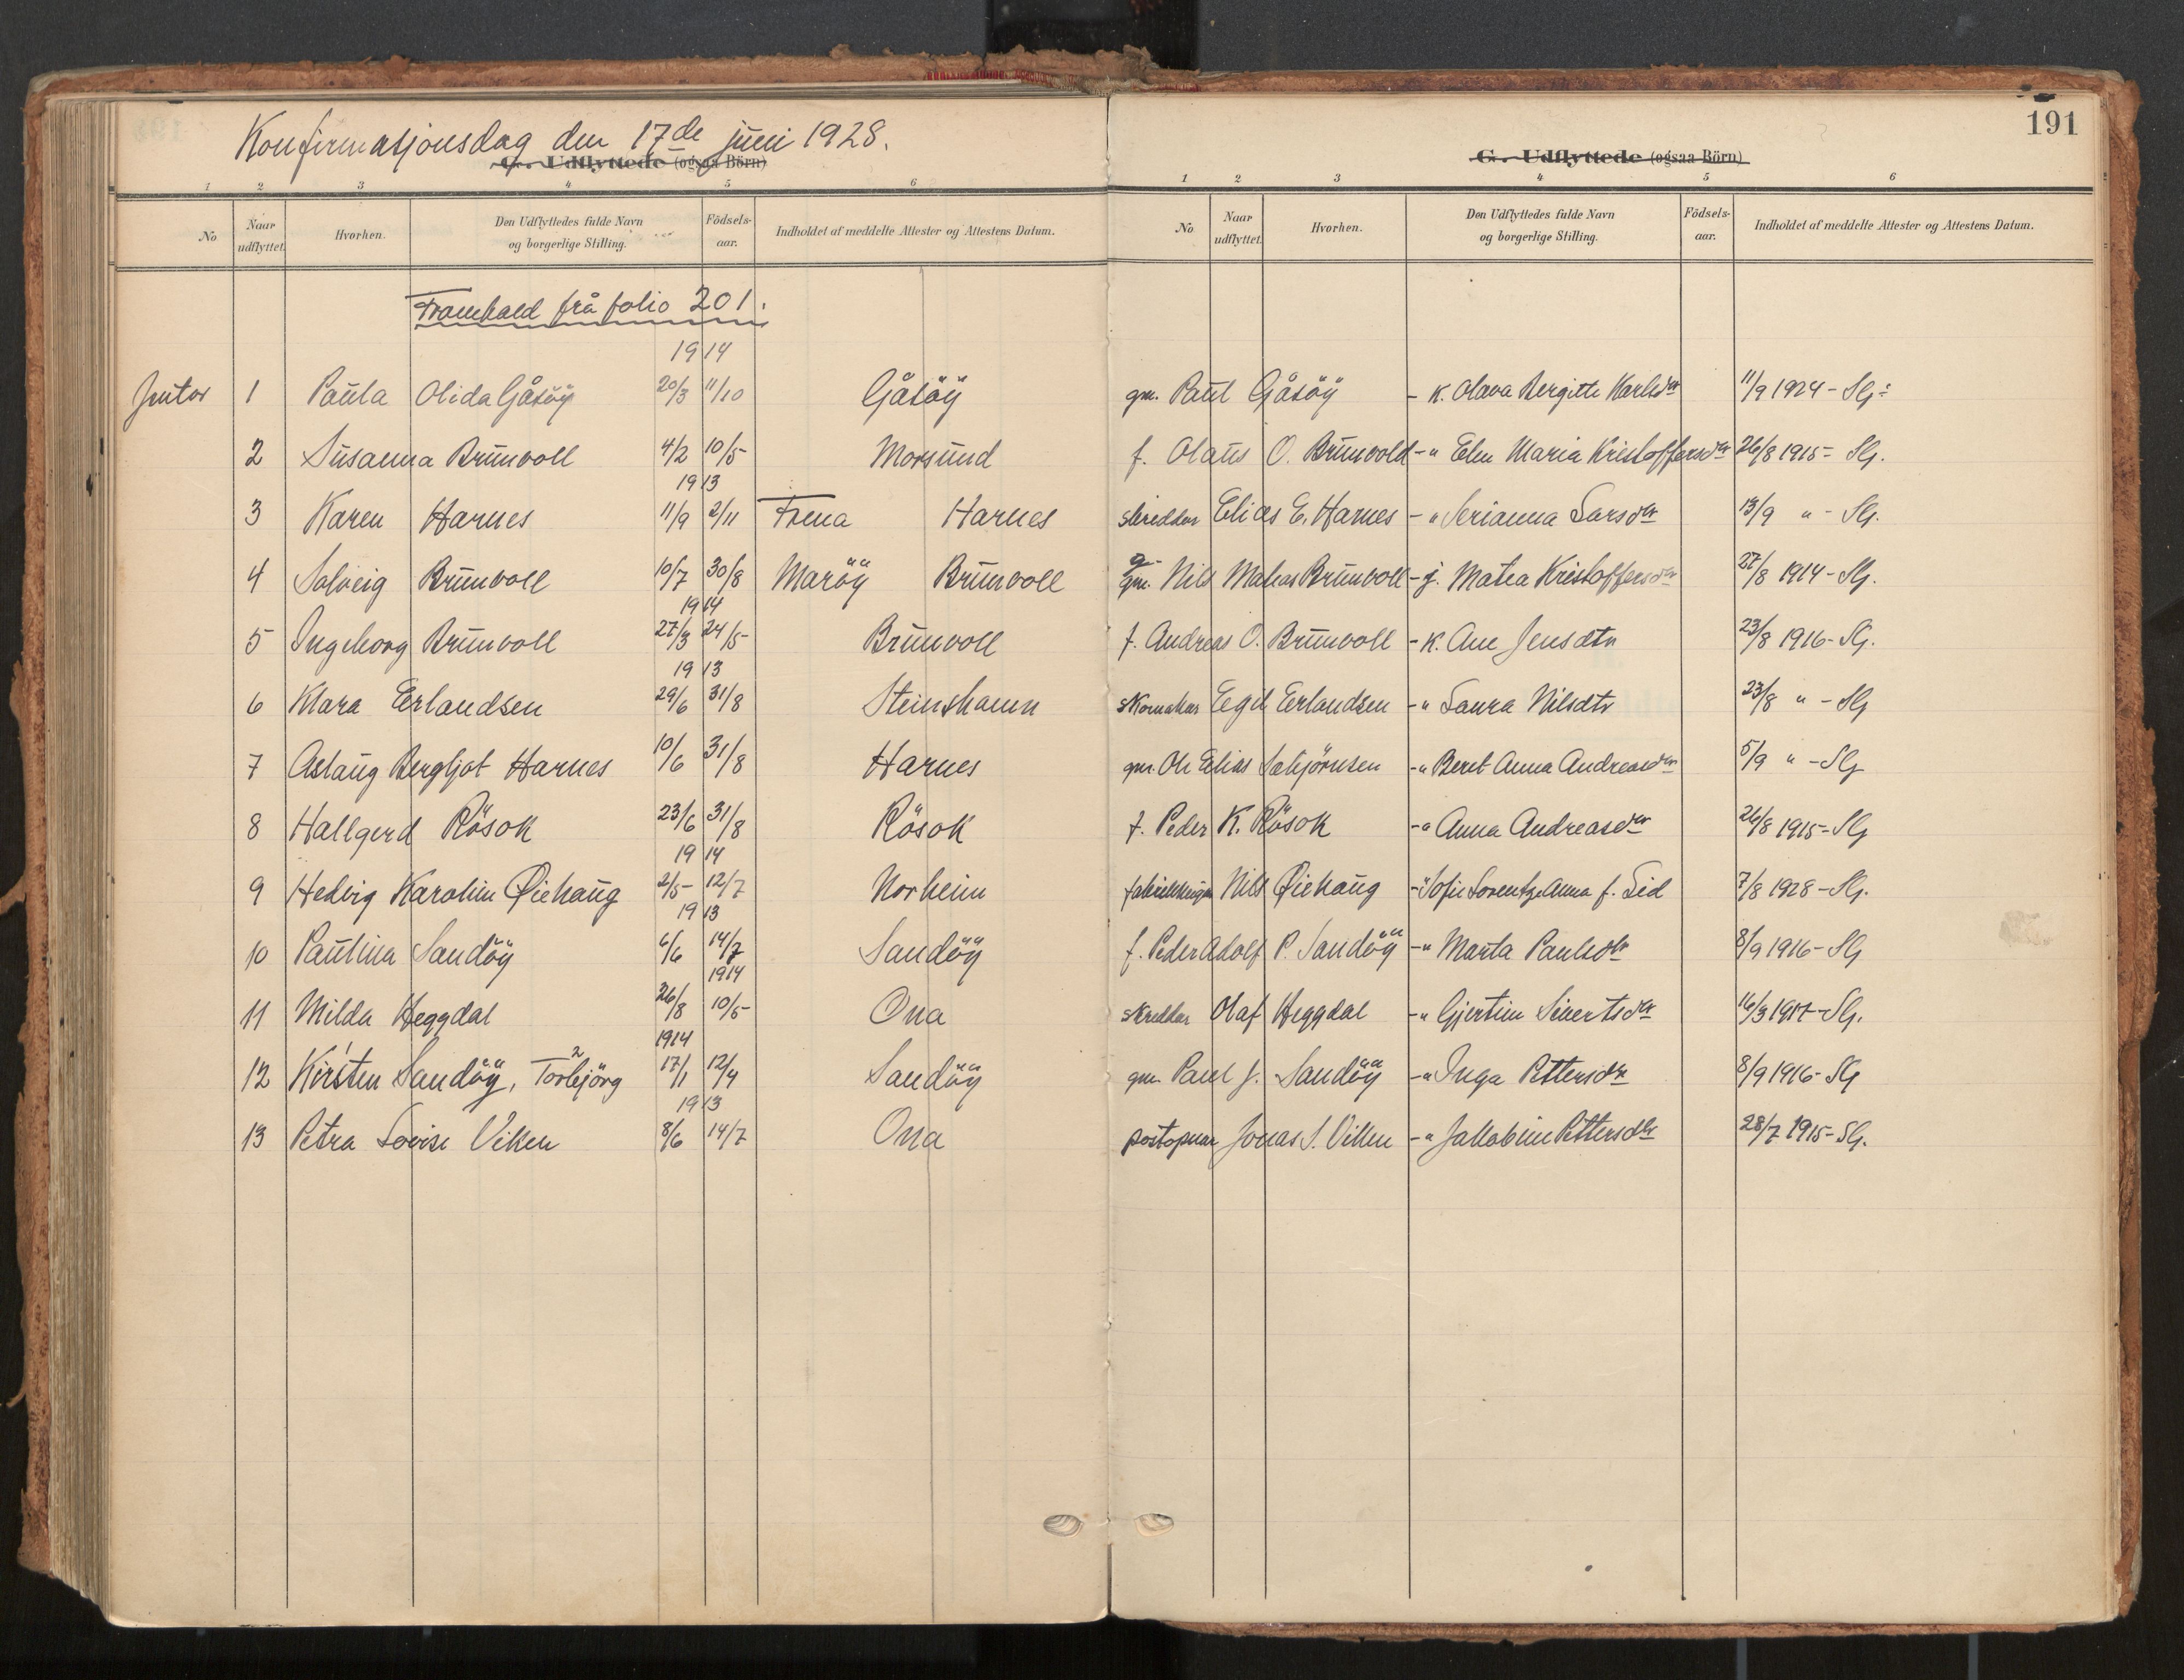 Konfirmasjonsdag den 17de juni 1928.
191
G. Udflyttede (ogsaa Börn)
G. Udflyttede (ogsaa Börn)
1 2 3 4 5 6
1 2 3 4 5 6
No Naar udflyttet. Hvorhen. Den Udflyttedes fulde Navn og borgerlige Stilling. Födsels-aar. Indholdet af meddelte Attester og Attestens Datum.
No Naar udflyttet. Hvorhen. Den Udflyttedes fulde Navn og borgerlige Stilling. Födsels-aar. Indholdet af meddelte Attester og Attestens Datum.
Framhald frå folio 201.
1914
Jentor 1 Paula Olida Gåsöy 20/3 11/10 Gåsöy gm. Paul Gåsöy - k. Olava Bergitte Karlsdr 11/9 1924 - Slj:
2 Susanna Brunvoll 4/2 10/5 Morsund f. Olaus O. Brunvold - " Elen Maria Kristoffersdr 26/8 1915 - Slj.
1913
3 Karen Harnes 11/9 2/11 Frena Harnes skreddar Elias E. Harnes - " Serianna Larsdr 13/9 " - Slj.
4 Solveig Brunvoll 10/7 30/8 Maröy Brunvoll gm. Nils Matias Brunvoll - g. Matea Kristoffersdr 27/8 1914 - Slj.
1914
5 Ingeborg Brunvoll 27/3 24/5 Brunvoll f. Andreas O. Brunvoll - k. Ane Jensdtr 23/8 1916 - Slj.
1913
6 Klara Erlandsen 29/6 31/8 Steinshamn skomakar Eegil Erlandsen - " Laura Nilsdtr 23/8 " - Slj
7 Aslaug Bergljot Harnes 10/6 31/8 Harnes gm. Ole Elias Sebjörnsen - " Beret Anna Andreasdr 5/9 " - Slj
8 Hallgerd Rösok 23/6 31/8 Rösok f. Peder K. Rösok - " Anna Andreasdr 26/8 1915 - Slj
1914
9 Hedvig Karoline Øiehaug 2/5 12/7 Norheim Nils Øiehaug - " Sofie Lorentze Anna f. Lid 7/8 1928 - Slj.
1913
10 Paulina Sandöy 6/6 14/7 Sandöy f. Peder Adolf P. Sandöy - " Marta Paulsdr 8/9 1916 - Slj
1914
11 Milda Heggdal 26/8 10/5 Ona skreddar Olaf Heggdal - " Gjertine Sivertsdr 16/3 1917 - Slj.
1914
12 Kirsten Sandöy, Torbjörg 17/1 12/4 Sandöy gm. Paul J. Sandöy - " Inga Pettersdr 8/9 1916 - Slj
1913
13 Petra Lovise Viken 8/6 14/7 Ona postopnar Jonas S. Viken - " Jakobine Pettersdr 28/7 1915 - Slj.